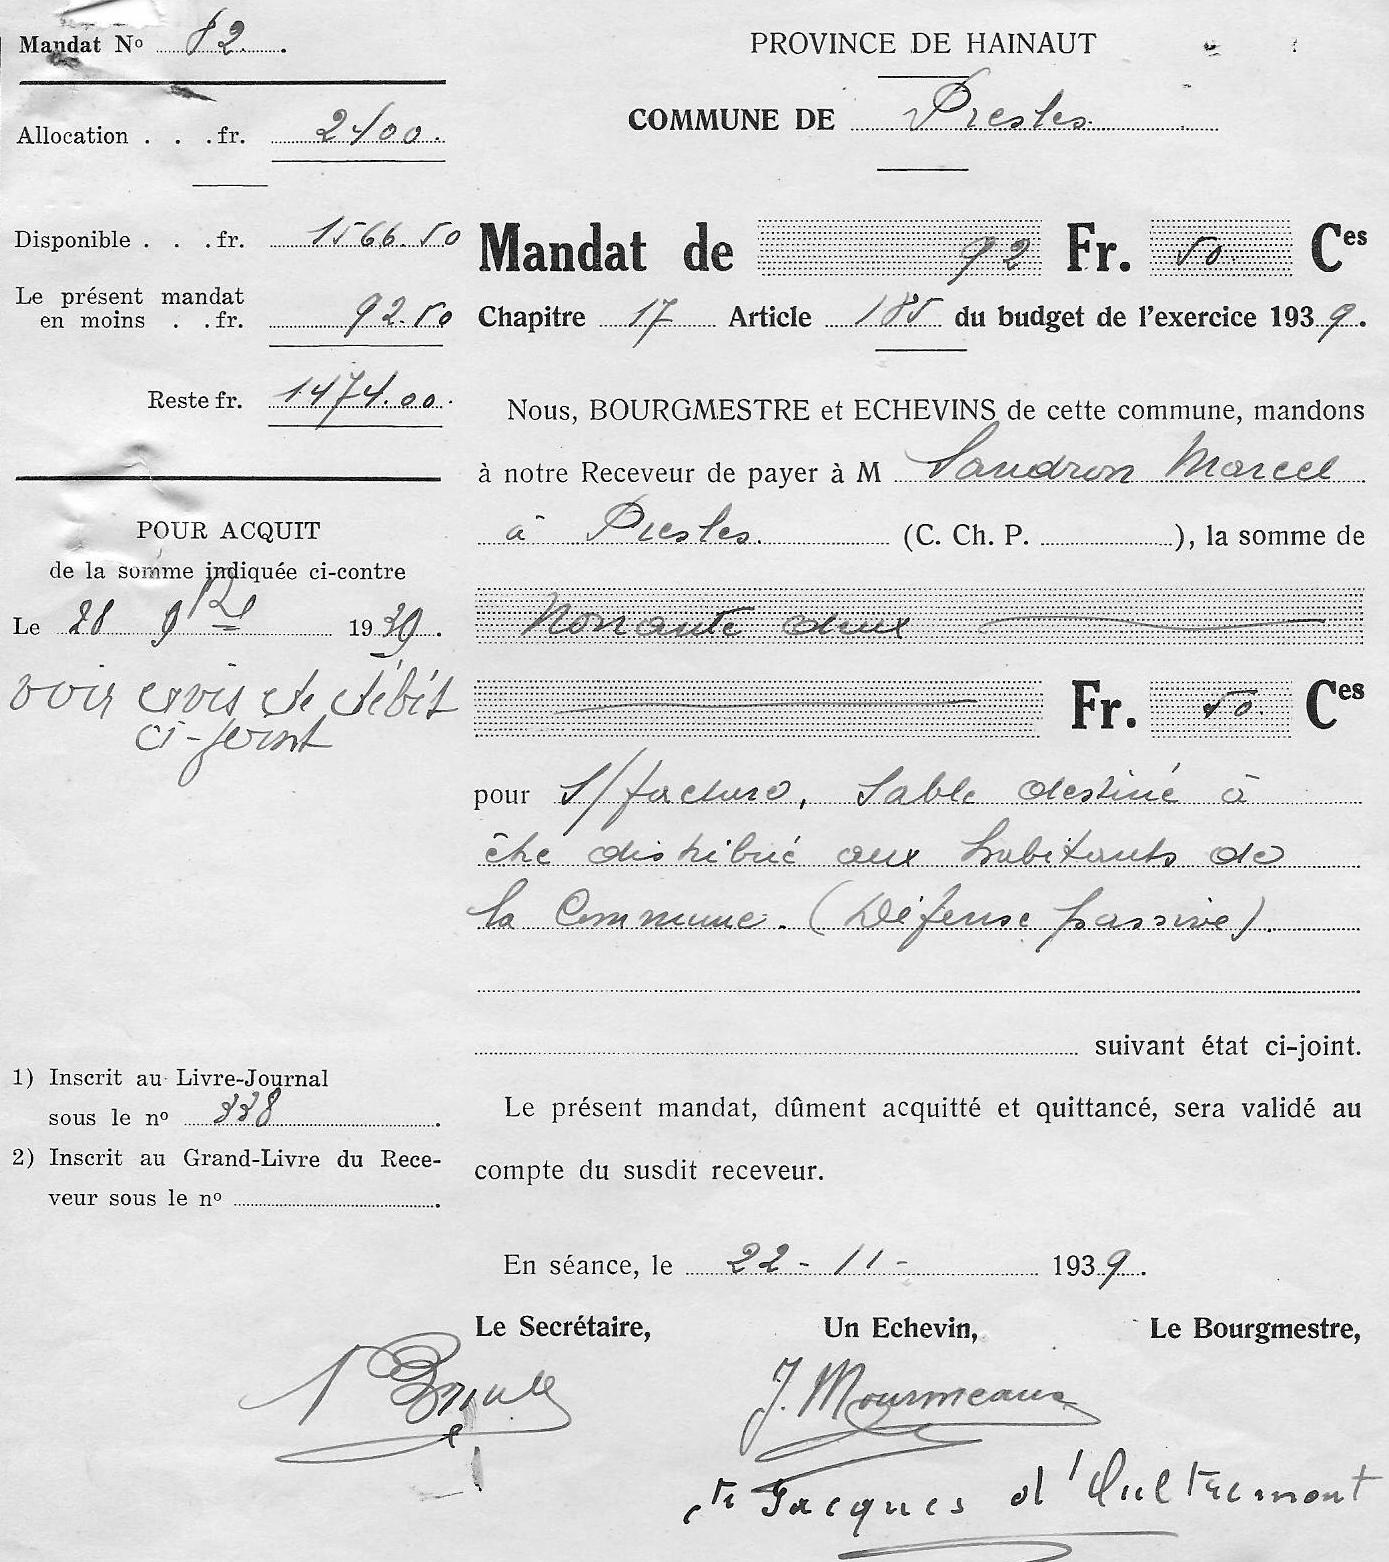 Mandat Nº 82.
Allocation . . . fr. 2400.
Disponible . . . fr. 1566.50
Le présent mandat
en moins . . fr. 92.50
Reste fr. 1474.00.
POUR ACQUIT
de la somme indiquée ci-contre
Le 28 9bre 1939.
voir avis de débit
ci-joint
1) Inscrit au Livre-Journal
sous le nº 338
2) Inscrit au Grand-Livre du Rece-
veur sous le nº
PROVINCE DE HAINAUT
COMMUNE DE Presles.
Mandat de 92 Fr. 50. Ces
Chapitre 17 Article 185 du budget de l'exercice 1939.
Nous, BOURGMESTRE et ECHEVINS de cette commune, mandons
à notre Receveur de payer à M Sandron Marcel
à Presles. (C. Ch. P. ), la somme de
Nonante deux
Fr. 50. Ces
pour s/facture, sable destiné à
être distribué aux habitants de
la Commune. (Défense passive).
suivant état ci-joint.
Le présent mandat, dûment acquitté et quittancé, sera validé au
compte du susdit receveur.
En séance, le 22-11- 1939.
Le Secrétaire, Un Echevin, Le Bourgmestre,
J. Mourmeaux
cte Jacques d'Oultremont